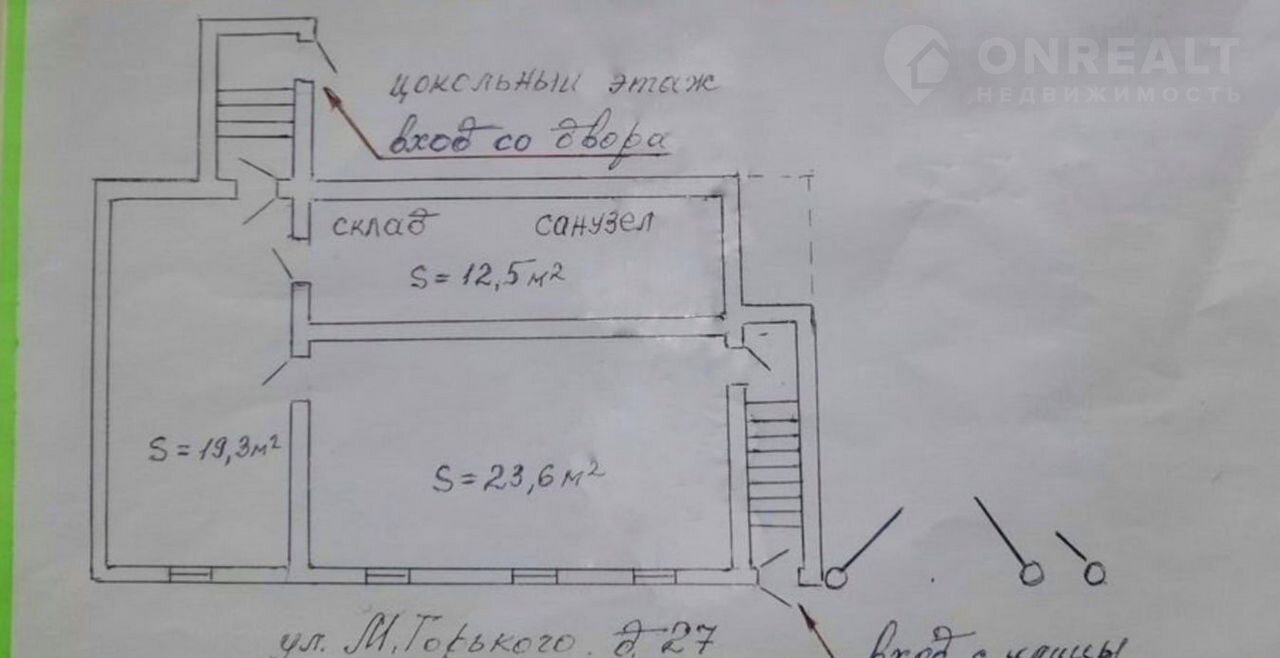 ONREALT
НЕДВИЖИМОСТЬ
цокольный этаж
вход со двора
склад санузел
S = 12,5 м²
S = 19,3 м²
S = 23,6 м²
ул. М. Горького. д. 27
вход с улицы